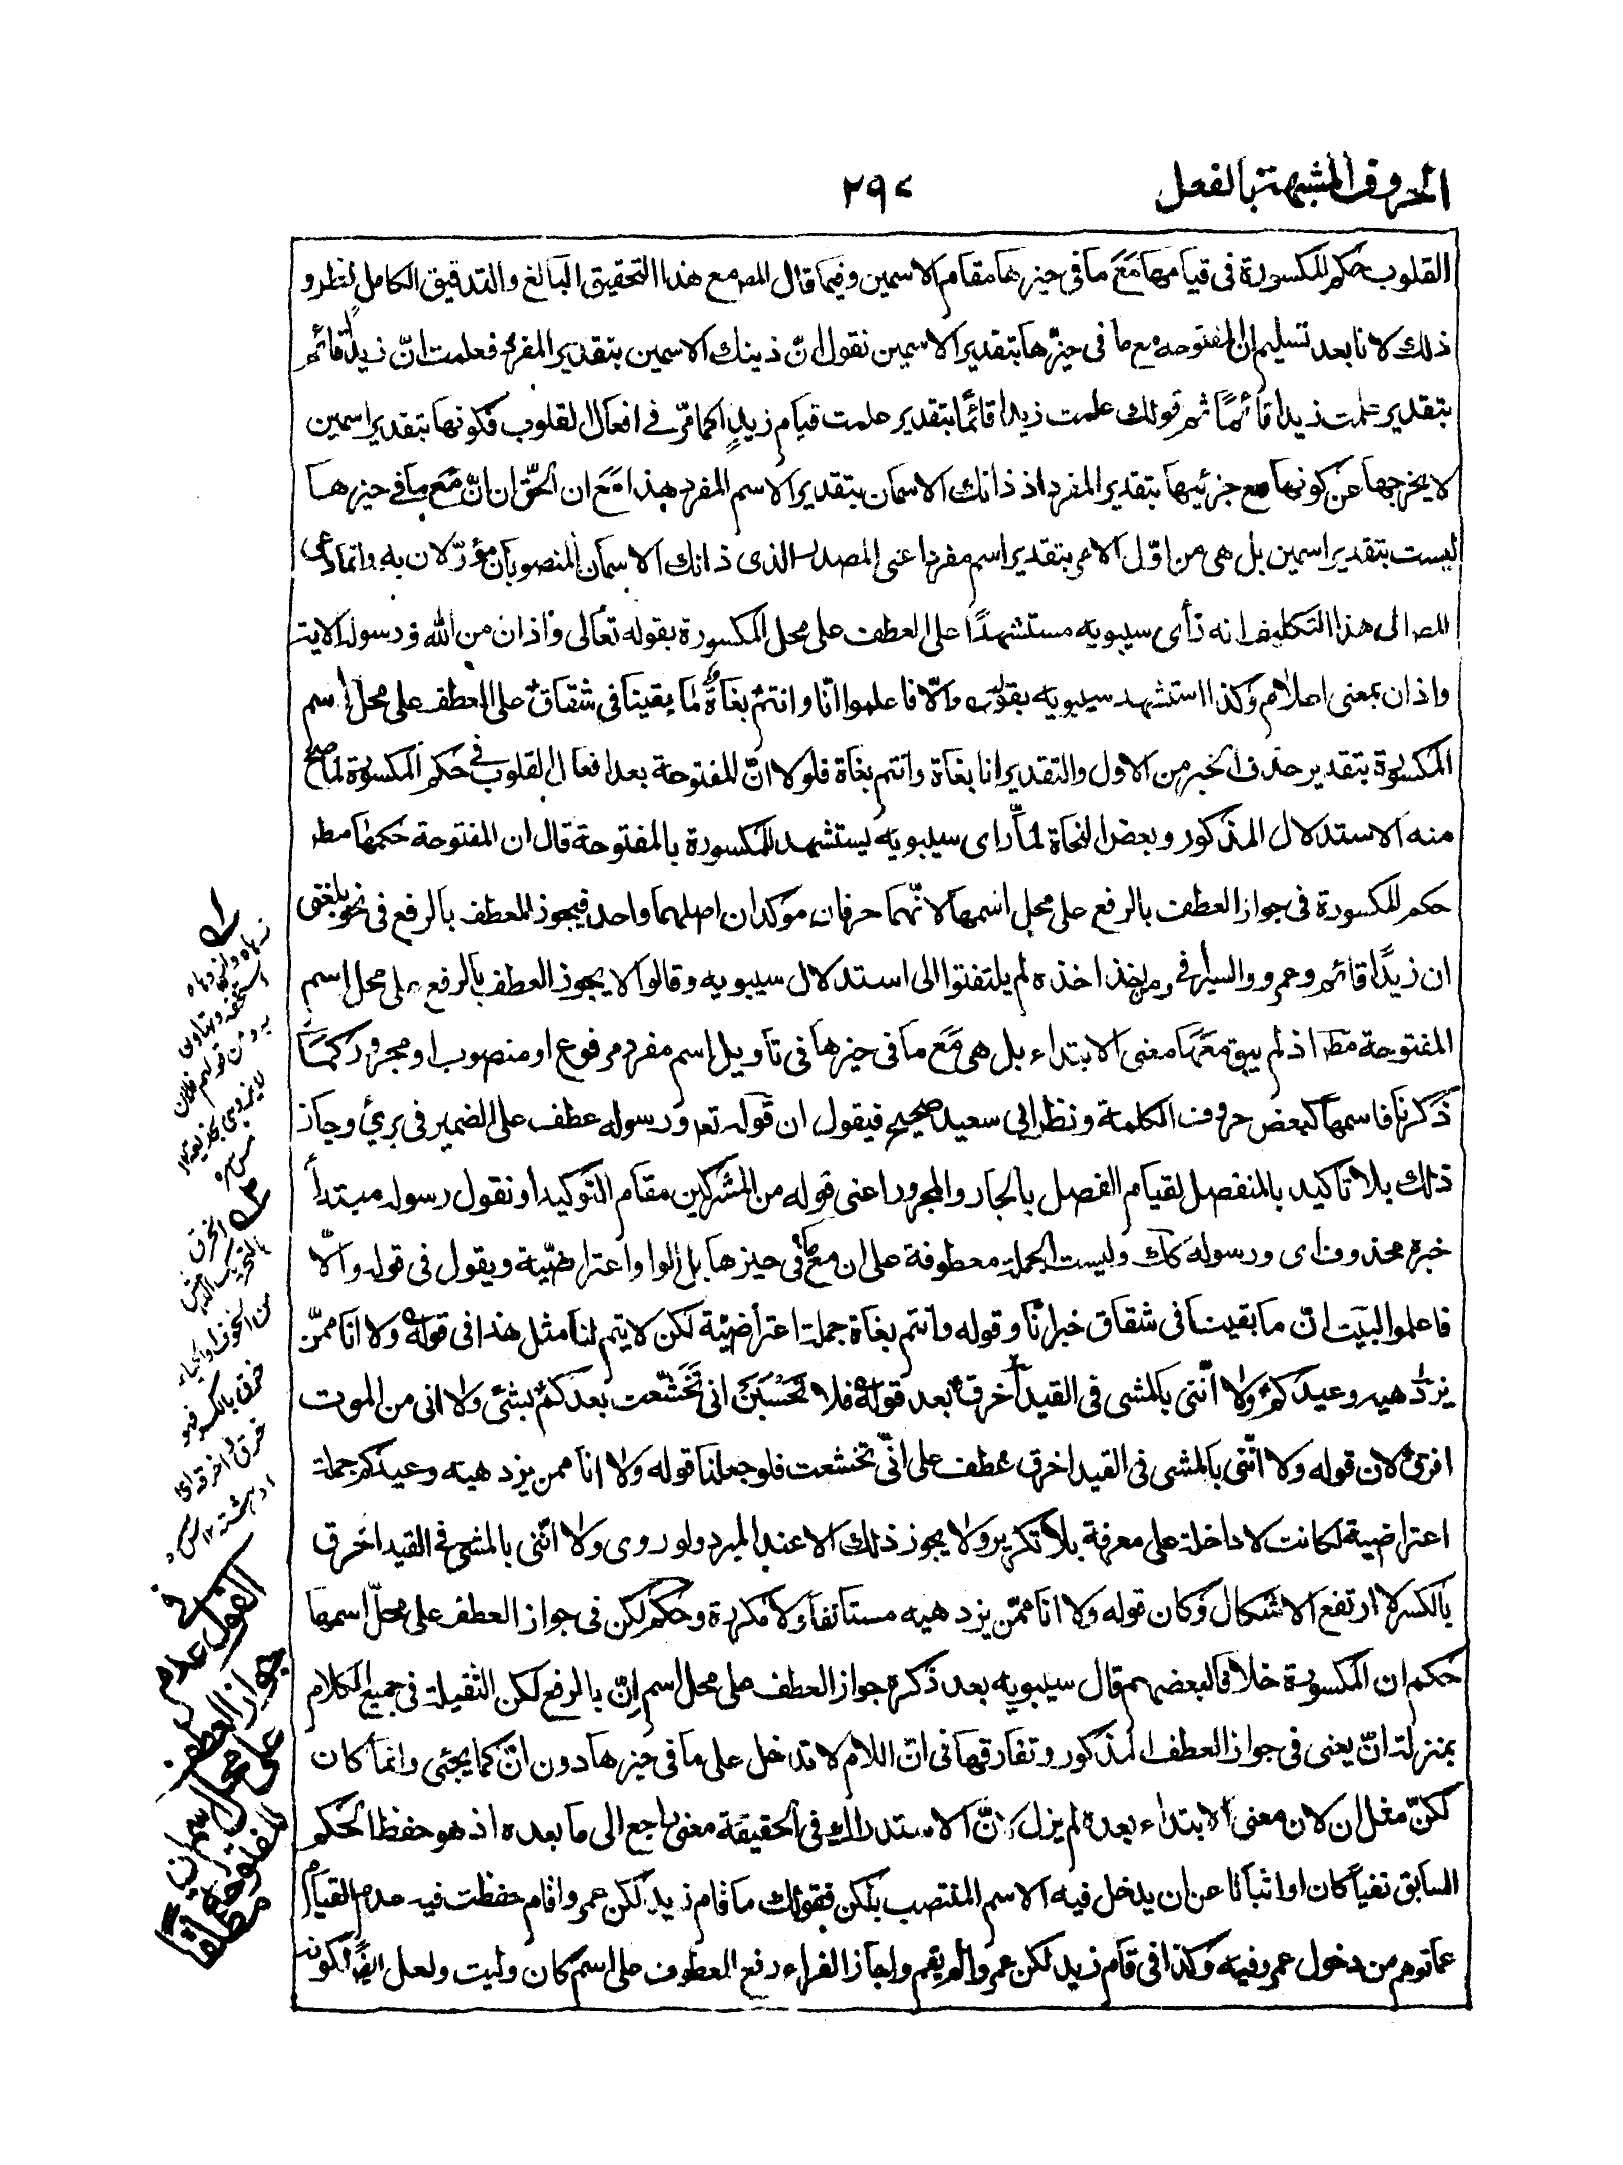 الحروف المشبهة بالفعل
٢٩٧
القلوب حكم المكسورة فى قيامها مع ما فى حيزها مقام الاسمين وفيما قال المصـ مع هذا التحقيق البالغ والتدقيق الكامل نظر و
ذلك لانا بعد تسليم ان المفتوحه مع ما فى حيزها بتقدير الاسمين نقول انّ ذينك الاسمين بتقدير المفرد فعلمت انّ زيدا قائم
بتقدير علمت زيدا قائما ثم قولك علمت زيدا قائما بتقدير علمت قيام زيدٍ كما مرّ فى افعال القلوب فكونها بتقدير اسمين
لا يخرجها عن كونها مع جزئيها بتقدير المفرد اذ ذانك الاسمان بتقدير الاسم المفرد هذا مع ان الحقّ ان انّ مع ما فى حيزها
ليست بتقدير اسمين بل هى من اوّل الامر بتقدير اسم مفرد اعنى المصدر الذى ذانك الاسمان المنصوبان مؤوّلان به وانما دعى
المصـ الى هذا التكليف انه رأى سيبويه مستشهدًا على العطف على محل المكسورة بقوله تعالى واذان من الله ورسوله الاية
واذان بمعنى اعلام وكذا استشهد سيبويه بقوله والّا فاعلموا انّا وانتم بغاةٌ ما بقينا فى شقاق على العطف على محل اسم
المكسورة بتقدير حذف الخبر من الاول والتقدير انا بغاة وانتم بغاة فلولا انّ المفتوحة بعد افعال القلوب فى حكم المكسورة لما صح
منه الاستدلال المذكور وبعض النحاة لمّا راى سيبويه يستشهد للمكسورة بالمفتوحة قال ان المفتوحة حكمها مطـ
حكم المكسورة فى جواز العطف بالرفع على محل اسمها لانّهما حرفان موكدان اصلهما واحد فيجوز العطف بالرفع فى نحو بلغنى
ان زيدًا قائم وعمرو والسيرافى ومن اخذ اخذه لم يلتفتوا الى استدلال سيبويه وقالوا لا يجوز العطف بالرفع على محل اسم
المفتوحة مطـ اذ لم يبق معها معنى الابتداء بل هى مع ما فى حيزها فى تاويل اسم مفرد مرفوع او منصوب او مجرور كما
ذكرنا فاسمها كبعض حروف الكلمة ونظر ابى سعيد صحيح فيقول ان قوله تعـ ورسوله عطف على الضمير فى برئ وجاز
ذلك بلا تاكيد بالمنفصل لقيام الفصل بالجار والمجرور اعنى قوله من المشركين مقام التوكيد او نقول رسوله مبتدأ
خبره محذوف اى ورسوله كذلك وليست الجملة معطوفة على ان مع ما فى حيزها بل الواو اعتراضيّة ويقول فى قوله والّا
فاعلموا البيت انّ ما بقينا فى شقاق خبر انّا وقوله وانتم بغاة جملة اعتراضيّة لكن لا يتم لنا مثل هذا فى قوله ولا انا ممّن
يزدهيه وعيدكم ولا انّنى بالمشى فى القيد اخرق بعد قوله فلا تحسبن انى تخشّعت بعدكم بشئ ولا انى من الموت
افرق لان قوله ولا انّنى بالمشى فى القيد اخرق عطف على انّى تخشعت فلو جعلنا قوله ولا انا ممن يزدهيه وعيدكم جملة
اعتراضية لكانت لا داخلة على معرفة بلا تكرير ولا يجوز ذلك الا عند المبرد ولو روى ولا انّنى بالمشى فى القيد اخرق
بالكسر لا ارتفع الاشكال وكان قوله ولا انا ممّن يزدهيه مستانفا ولا مكررة وحكم لكن فى جواز العطف على محلّ اسمها
حكم ان المكسورة خلافا لبعضهم قال سيبويه بعد ذكره جواز العطف على محل اسم اِنّ بالرفع لكن الثقيلة فى جميع الكلام
بمنزلة انّ يعنى فى جواز العطف المذكور وتفارقها فى انّ اللام لا تدخل على ما فى حيزها دون انّ كما يجئى وانما كان
لكنّ مثل ان لان معنى الابتداء بعده لم يزل لانّ الاستدراك فى الحقيقة معنى راجع الى ما بعده اذ هو حفظ الحكم
السابق نفيا كان او اثباتا عن ان يدخل فيه الاسم المنتصب بلكن فقولك ما قام زيد لكن عمروا قام حفظت فيه عدم القيام
عما توهم من دخول عمرو فيه وكذا فى قام زيد لكن عمروا لم يقم واجاز الفراء رفع المعطوف على اسم كان وليت ولعل ايضًا لكونه
القول فى
عدم
جواز العطف
على محل
اسم ان
المفتوحة
مطلقا